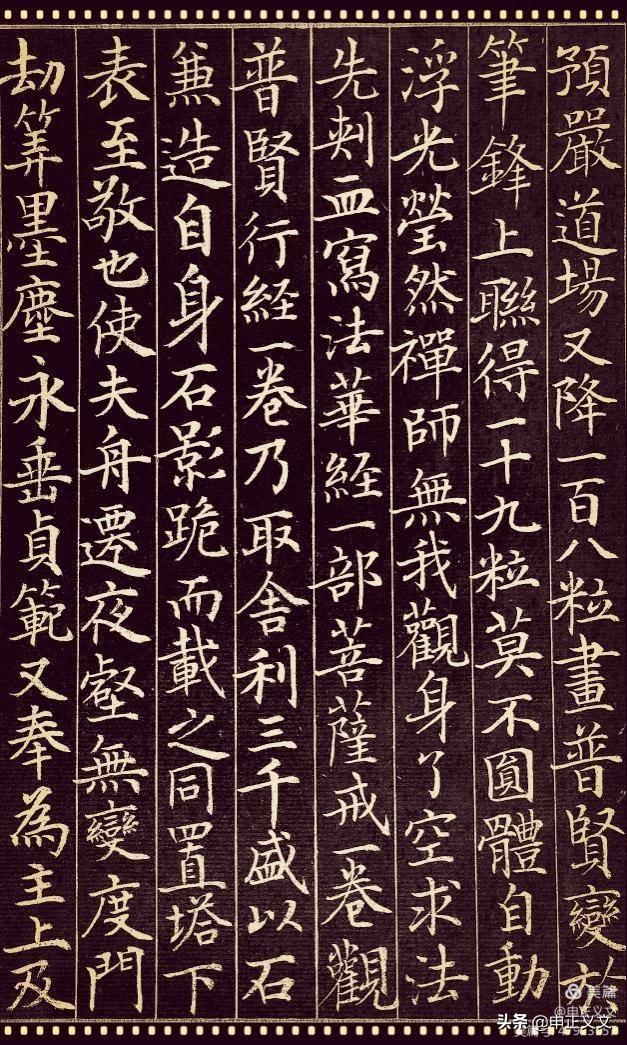 預嚴道場又降一百八粒畫普賢變於
筆鋒上聯得一十九粒莫不圓體自動
浮光瑩然禪師無我觀身了空求法
先刾血寫法華經一部菩薩戒一卷觀
普賢行経一卷乃取舍利三千盛以石
兼造自身石影跪而載之同置塔下
表至敬也使夫舟遷夜壑無變度門
劫筭墨塵永垂貞範又奉為主上及
美篇
@申正义文
头条 @申正义文